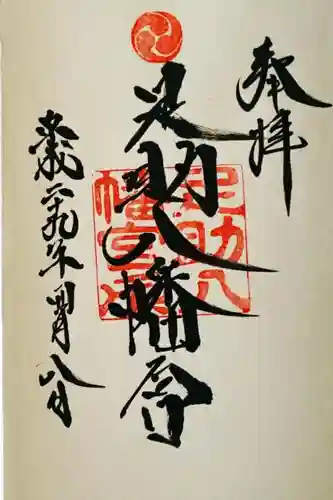 奉拝
足助八幡宮
足助八
幡宮
平成二十九年四月八日